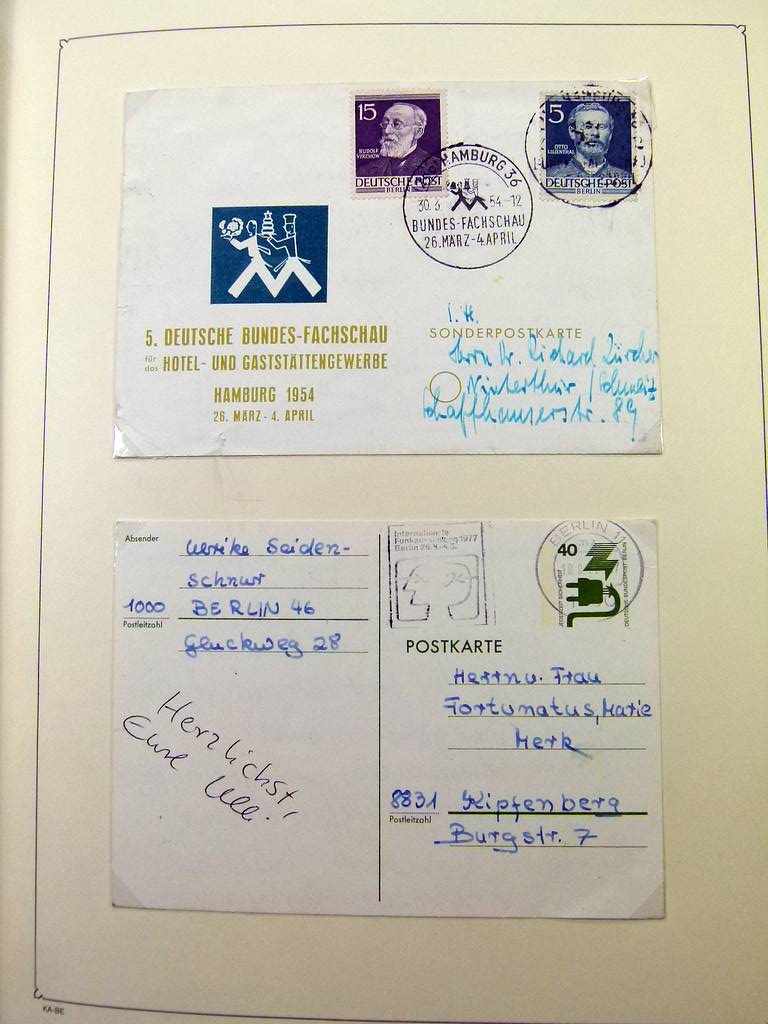 15
RUDOLF
VIRCHOW
DEUTSCHE POST
BERLIN
5
OTTO
LILIENTHAL
DEUTSCHE POST
BERLIN
HAMBURG 36
30.3. 54-12
BUNDES-FACHSCHAU
26.MÄRZ-4.APRIL
5. DEUTSCHE BUNDES-FACHSCHAU
für das HOTEL- UND GASTSTÄTTENGEWERBE
HAMBURG 1954
26. MÄRZ - 4. APRIL
SONDERPOSTKARTE
Herrn Dr. Richard Zürcher
Winterthur / Schweiz
Schaffhauserstr. 89
Absender
Ulrike Seiden-
schnur
1000 BERLIN 46
Postleitzahl
Gluckweg 28
Herzlichst,
Eure Ulle!
Internationale
Funkausstellung 1977
Berlin
BERLIN 11
40
JEDERZEIT SICHERHEIT
DEUTSCHE BUNDESPOST BERLIN
POSTKARTE
Herrn u. Frau
Fortunatus, Marie
Merk
8831 Kipfenberg
Postleitzahl
Burgstr. 7
KA-BE